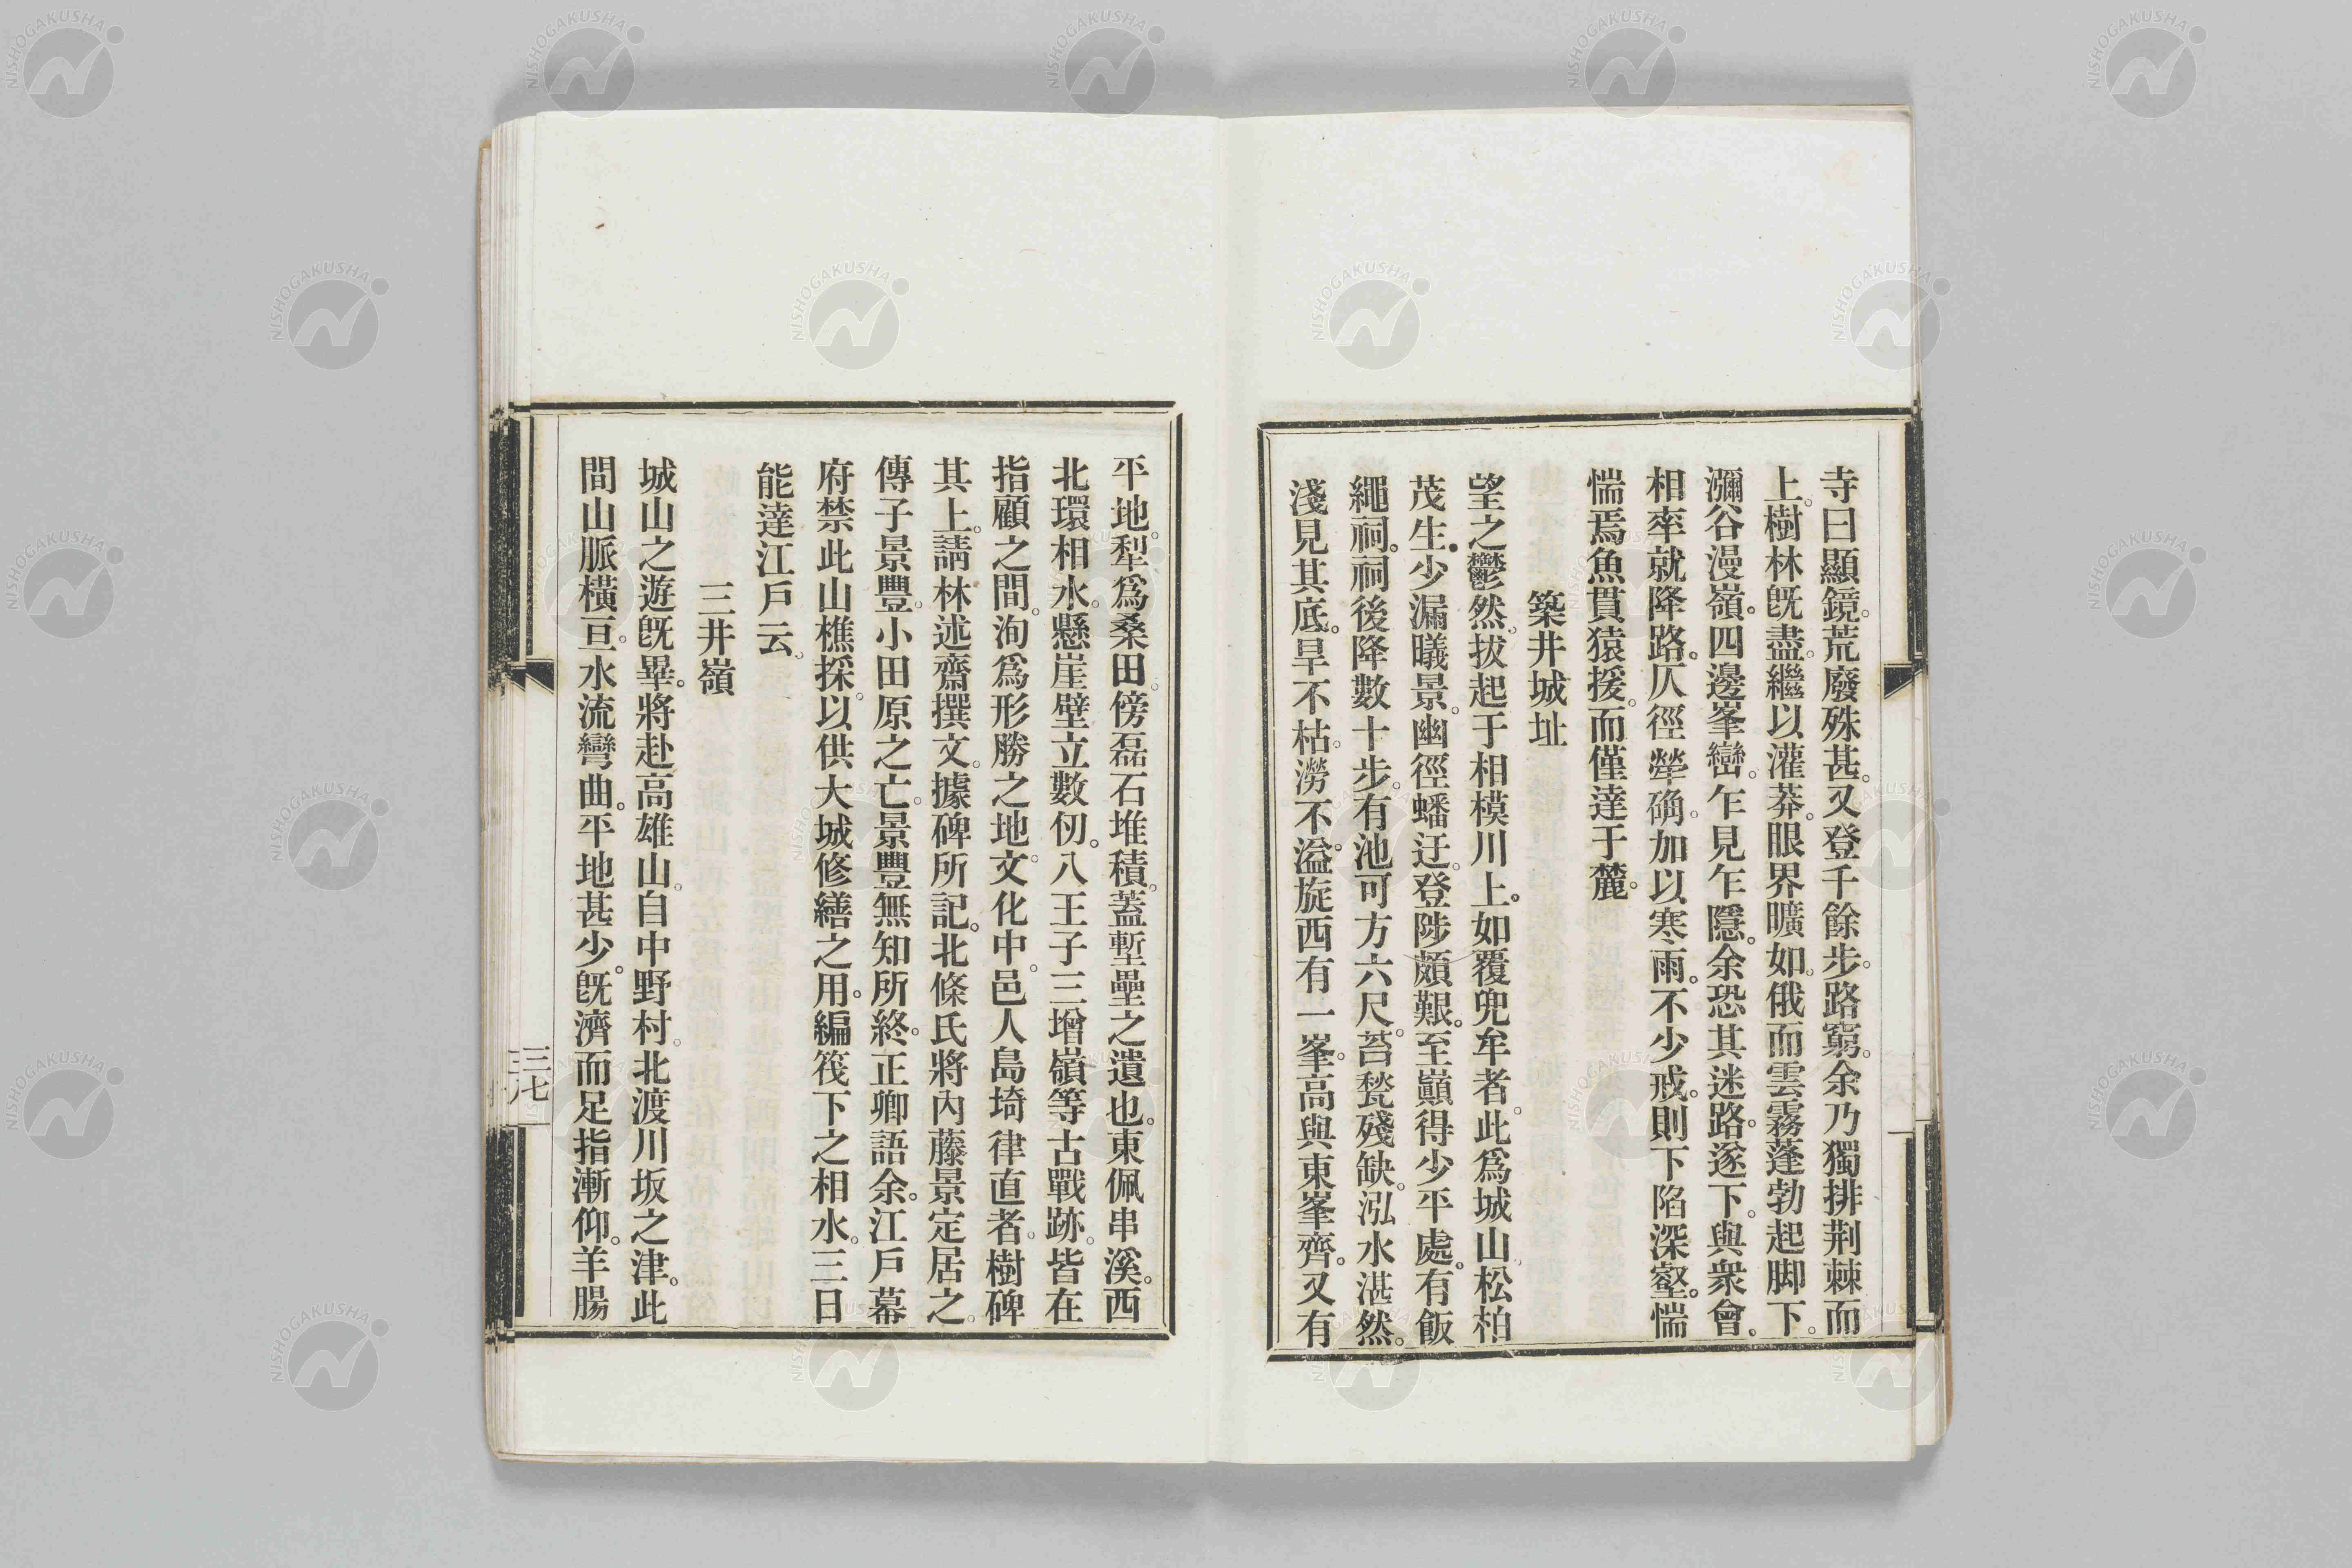 寺曰顯鏡。荒廢殊甚。又登千餘步。路窮。余乃獨排荆棘而
上。樹林既盡。繼以灌莽。眼界曠如。俄而雲霧蓬勃起脚下。
瀰谷漫嶺。四邊峯巒。乍見乍隱。余恐其迷路。遂下。與衆會。
相率就降路。仄徑犖确。加以寒雨。不少戒。則下陷深壑。惴
惴焉魚貫猿援。而僅達于麓。
築井城址
望之鬱然。拔起于相模川上。如覆兜牟者。此爲城山。松柏
茂生。少漏曦景。幽徑蟠迂。登陟頗艱。至巓得少平處。有飯
繩祠。祠後降數十步。有池可方六尺。苔甃殘缺。泓水湛然。
淺見其底。旱不枯。澇不溢。旋西有一峯。高與東峯齊。又有
平地。犁爲桑田。傍磊石堆積。蓋塹壘之遺也。東佩串溪。西
北環相水。懸崖壁立數仞。八王子三增嶺等古戰跡。皆在
指顧之間。洵爲形勝之地。文化中。邑人島埼律直者。樹碑
其上。請林述齋撰文。據碑所記。北條氏將內藤景定居之。
傳子景豐。小田原之亡。景豐無知所終。正卿語余。江戶幕
府禁此山樵採。以供大城修繕之用。編筏下之相水。三日
能達江戶云。
三井嶺
城山之遊既畢。將赴高雄山。自中野村。北渡川坂之津。此
間山脈橫亘。水流彎曲。平地甚少。既濟而足指漸仰。羊腸
三七
NISHOGAKUSHA